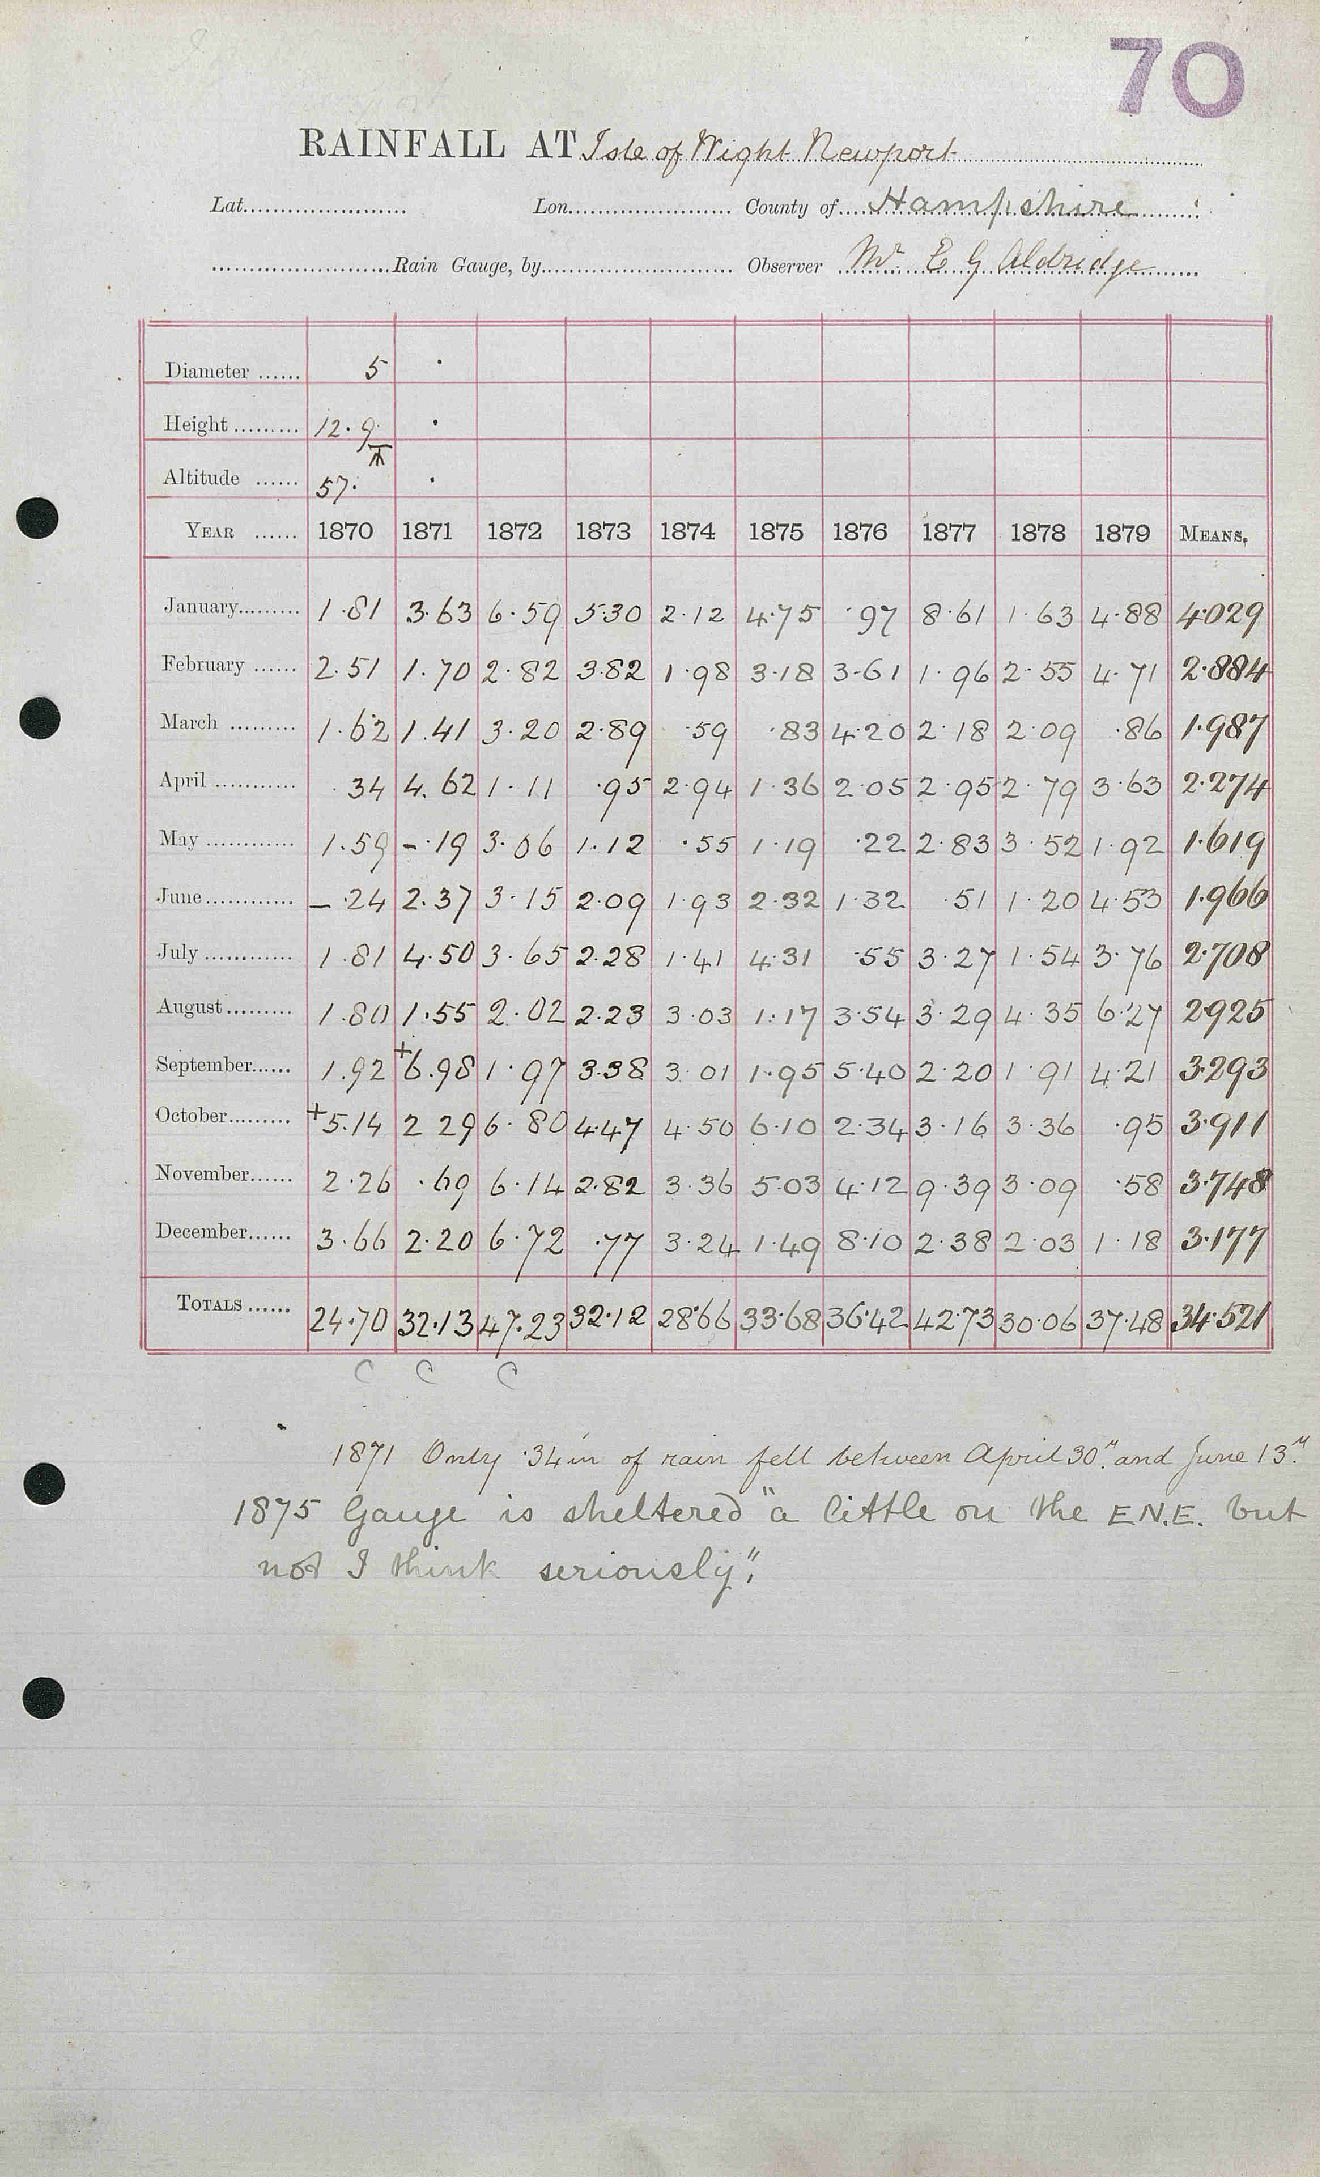 70
RAINFALL AT Isle of Wight Newport
Lat. Lon. County of Hampshire
Rain Gauge, by Observer Mr E G Aldridge
Diameter 5 .
Height 12.9 .
Altitude 57. .
YEAR 1870 1871 1872 1873 1874 1875 1876 1877 1878 1879 MEANS,
January 1.81 3.63 6.59 5.30 2.12 4.75 .97 8.61 1.63 4.88 4.029
February 2.51 1.70 2.82 3.82 1.98 3.18 3.61 1.96 2.55 4.71 2.884
March 1.62 1.41 3.20 2.89 .59 .83 4.20 2.18 2.09 .86 1.987
April .34 4.62 1.11 .95 2.94 1.36 2.05 2.95 2.79 3.63 2.274
May 1.59 - .19 3.06 1.12 .55 1.19 .22 2.83 3.52 1.92 1.619
June - .24 2.37 3.15 2.09 1.93 2.32 1.32 .51 1.20 4.53 1.966
July 1.81 4.50 3.65 2.28 1.41 4.31 .55 3.27 1.54 3.76 2.708
August 1.80 1.55 2.02 2.23 3.03 1.17 3.54 3.29 4.35 6.27 2.925
September 1.92 +6.98 1.97 3.38 3.01 1.95 5.40 2.20 1.91 4.21 3.293
October +5.14 2.29 6.80 4.47 4.50 6.10 2.34 3.16 3.36 .95 3.911
November 2.26 .69 6.14 2.82 3.36 5.03 4.12 9.39 3.09 .58 3.748
December 3.66 2.20 6.72 .77 3.24 1.49 8.10 2.38 2.03 1.18 3.177
TOTALS 24.70 32.13 47.23 32.12 28.66 33.68 36.42 42.73 30.06 37.48 34.521
C C C
1871 Only .34 in of rain fell between April 30th and June 13th
1875 Gauge is sheltered "a little on the E.N.E. but
not I think seriously".